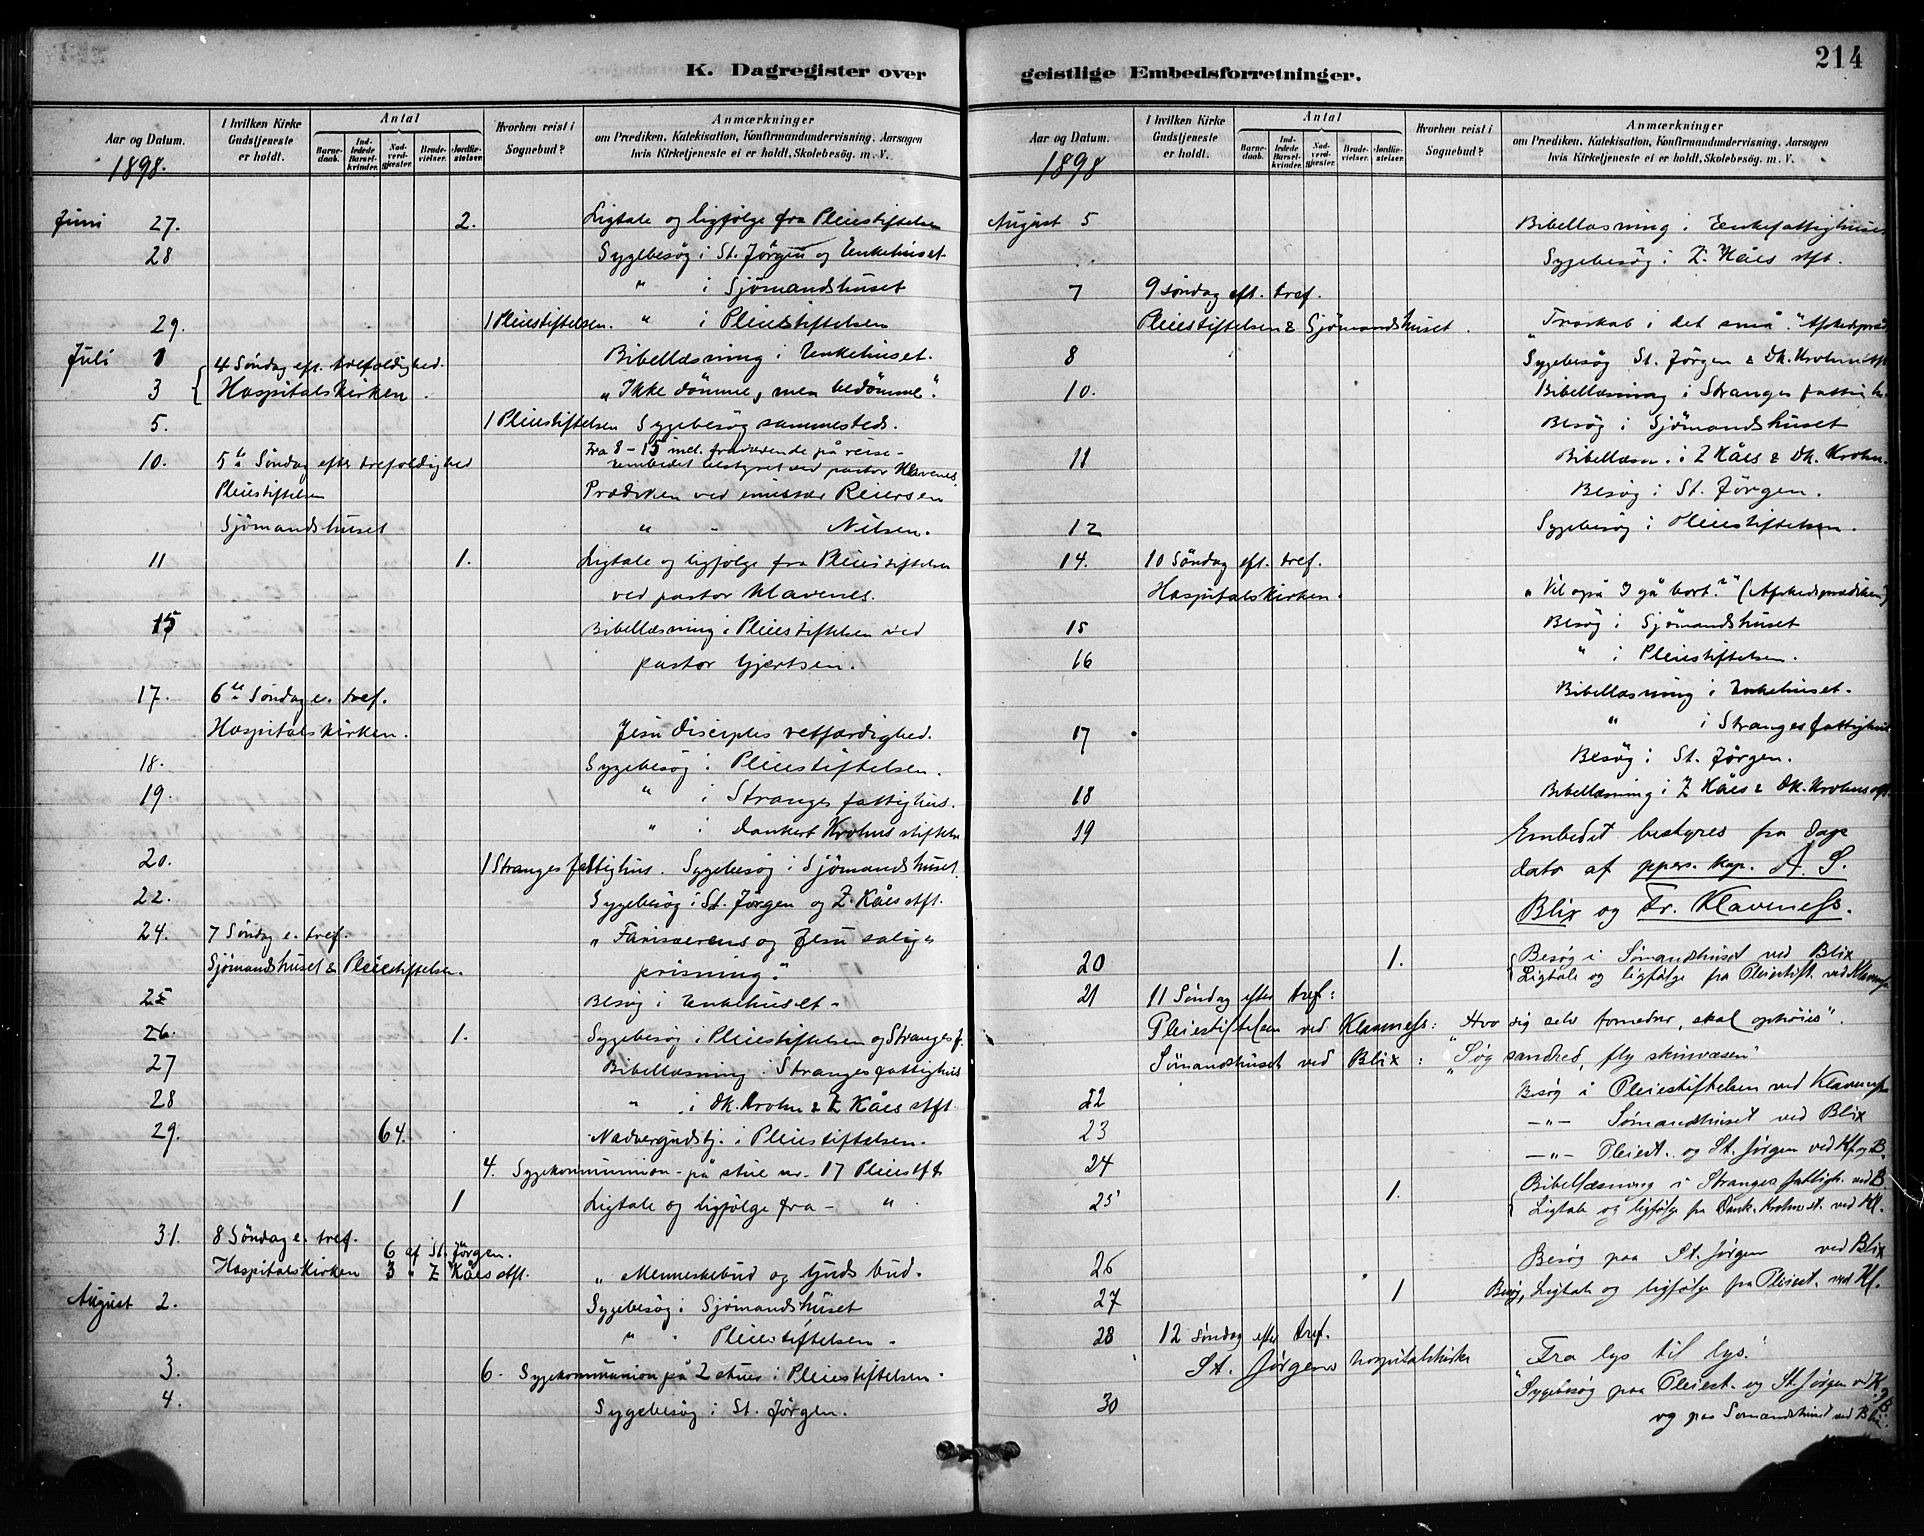 214
K. Dagregister over geistlige Embedsforretninger.
Aar og Datum.
I hvilken Kirke Gudstjeneste er holdt.
Antal
Barnedaab.
Indledede Barselkvinder.
Nadverdgjester.
Brudevielser.
Jordfæstelser.
Hvorhen reist i Sognebud?
Anmærkninger
om Prædiken, Katekisation, Konfirmandundervisning, Aarsagen
hvis Kirketjeneste ei er holdt, Skolebesøg. m. V.
1898.
Juni 27. 2. Ligtale og ligfølge fra Pleiestiftelsen
28 Sygebesøg i St. Jörgen og Enkehuset
" i Sjömandshuset
29. 1 Pleiestiftelsen. " i Pleiestiftelsen
Juli 1 Bibellæsning i Enkehuset.
4 Söndag eft. trefoldighed.
3 Hospitalskirken. "Ikke dömme, men bedömme".
5. 1 Pleiestiftelsen Sygebesøg sammesteds.
Fra 8-15 incl. fraværende på reise-
10. 5te Söndag efter trefoldighed embedet bestyret ved pastor Klavenes.
Pleiestiftelsen Prædiken ved emissær Reiersen
Sjömandshuset " " Nilsen.
11 1. Ligtale og ligfølge fra Pleiestiftelsen
ved pastor Klavenes.
15 Bibellæsning i Pleiestiftelsen ved
pastor Gjertsen.
17. 6te Söndag e. tref.
Hospitalskirken. Jesu disciples retfærdighed.
18. Sygebesøg i Pleiestiftelsen.
19. " i Stranges fattighus.
" i Dankert Krohns stiftelse
20. 1 Stranges fattighus. Sygebesøg i Sjømandshuset.
22. Sygebesøg i St. Jörgen og Z. Kåes stft.
24. 7 Söndag e. tref. "Farisæerens og Jesu salige
Sjömandshuset & Pleiestiftelsen. prisning."
25 Besøg i Enkehuset.
26. 1. Sygebesøg i Pleiestiftelsen og Stranges f.
27 Bibellæsning i Stranges fattighus
28 " i Dk. Krohn & Z Kåes stft.
29. 64. Nadvergudstj. i Pleiestiftelsen.
4. Sygekommunion på stue nr. 17 Pleiestft
1 Ligtale og ligfølge fra - " .
31. 8 Söndag e. tref.
6 af St. Jörgen.
Hospitalskirken 3 " Z Kåes stft. "Menneskebud og Guds bud.
August 2. Sygebesøg i Sjömandshuset
" " Pleiestiftelsen.
3. 6. Sygekommunion på 2 stuer i Pleiestiftelsen.
4. Sygebesøg i St. Jörgen.
Aar og Datum.
I hvilken Kirke Gudstjeneste er holdt.
Antal
Barnedaab.
Indledede Barselkvinder.
Nadverdgjester.
Brudevielser.
Jordfæstelser.
Hvorhen reist i Sognebud?
Anmærkninger
om Prædiken, Katekisation, Konfirmandundervisning, Aarsagen
hvis Kirketjeneste ei er holdt, Skolebesøg. m. V.
1898
August 5 Bibellæsning i Enkefattighuset
Sygebesøg i Z. Kåes stft.
7 9 söndag eft. tref.
Pleiestiftelsen & Sjömandshuset. "Troskab i det små."
8 Sygebesøg St. Jörgen & Dk. Krohns stft
10. Bibellæsning i Stranges fattigh.
Besøg i Sjömandshuset
11 Bibellæsn. i Z Kåes & Dk. Krohn.
Besøg i St. Jörgen.
12 Sygebesøg i Pleiestiftelsen.
14. 10 Söndag eft. tref.
Hospitalskirken. "Vil også I gå bort?" (Afskedsprædiken)
15 Besøg i Sjömandshuset
16 " i Pleiestiftelsen.
Bibellæsning i Enkehuset.
17 " i Stranges fattighus
Besøg i St. Jørgen.
18 Bibellæsning i Z Kåes & Dk. Krohns stft.
19 Embedet bestyres fra dags
dato af pers. kap. A. S.
Blix og Fr. Klaveness.
20 1. Besøg i Sømandshuset ved Blix
Ligtale og ligfølge fra Pleiestift. ved Klaveness
21 11 Søndag efter tref:
Pleiestiftelsen ved Klaveness: Hvo sig selv fornedrer, skal ophøies".
Sømandshuset ved Blix: "Søg sandhed, fly skinvæsen"
22 Besøg i Pleiestiftelsen ved Klaveness
23 -"- Sømandhuset ved Blix
24 -"- Pleiest. og St. Jørgen ved Kl. og B.
25 1. Bibellæsning i Stranges fattigh. ved B.
Ligtale og ligfølge fra Dank. Krohns st. ved Kl.
26 Besøg paa St. Jørgen ved Blix
27 1 Besøg, Ligtale og ligfølge fra Pleiest. ved Kl.
28 12 søndag efter tref.
St. Jørgens hospitalskirke Fra lys til lys!
30 Sygebesøg paa Pleiest. og St. Jørgen ved K. & B.
og paa Sømandshuset ved Blix